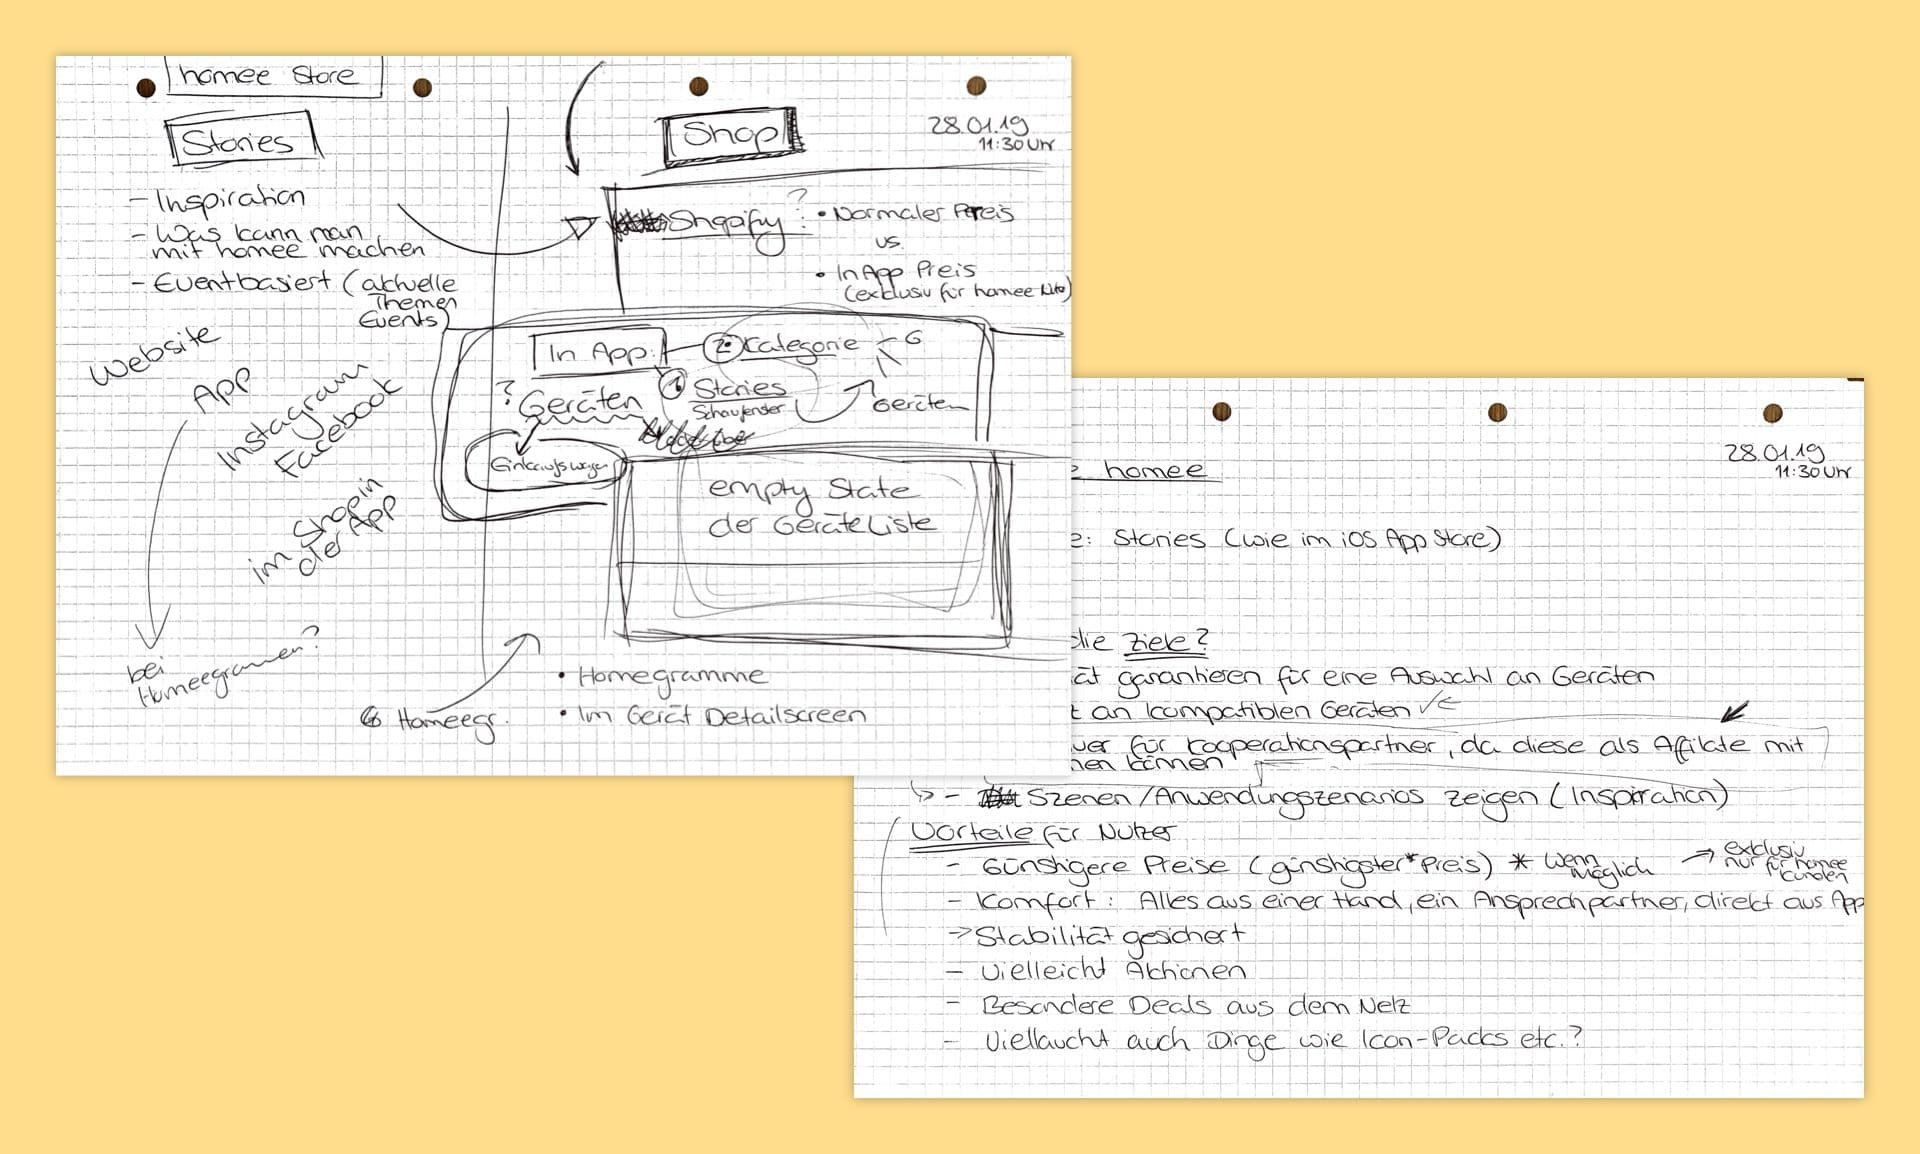 homee Store
Stories
- Inspiration
- Was kann man
mit homee machen
- Eventbasiert (aktuelle
Themen
Events)
Website
App
Instagram
Facebook
im Shop in
der App
bei
Homeegrammen?
Shop
28.01.19
11:30 Uhr
Shopify?
• Normaler Preis
vs.
• In App Preis
(exklusiv für homee
In App
2. Kategorie
G
? Geräten
1 Stories
Schaufenster
Geräten
Einkaufswagen
empty State
der Geräteliste
Homeegr.
• Homegramme
• Im Gerät Detailscreen
28.01.19
11:30 Uhr
homee
e: Stories (wie im iOS App Store)
die Ziele?
ät garantieren für eine Auswahl an Geräten
t an kompatiblen Geräten
für Kooperationspartner, da diese als Affilate mit
nen können
- Szenen/Anwendungszenarios zeigen (Inspiration)
Vorteile für Nutzer
- Günstigere Preise (günstigster* Preis) * wenn möglich → exklusiv
nur für homee
kunden
- Komfort: Alles aus einer Hand, ein Ansprechpartner, direkt aus App
→ Stabilität gesichert
- Vielleicht Aktionen
- Besondere Deals aus dem Netz
- Viellaucht auch Dinge wie Icon-Packs etc.?